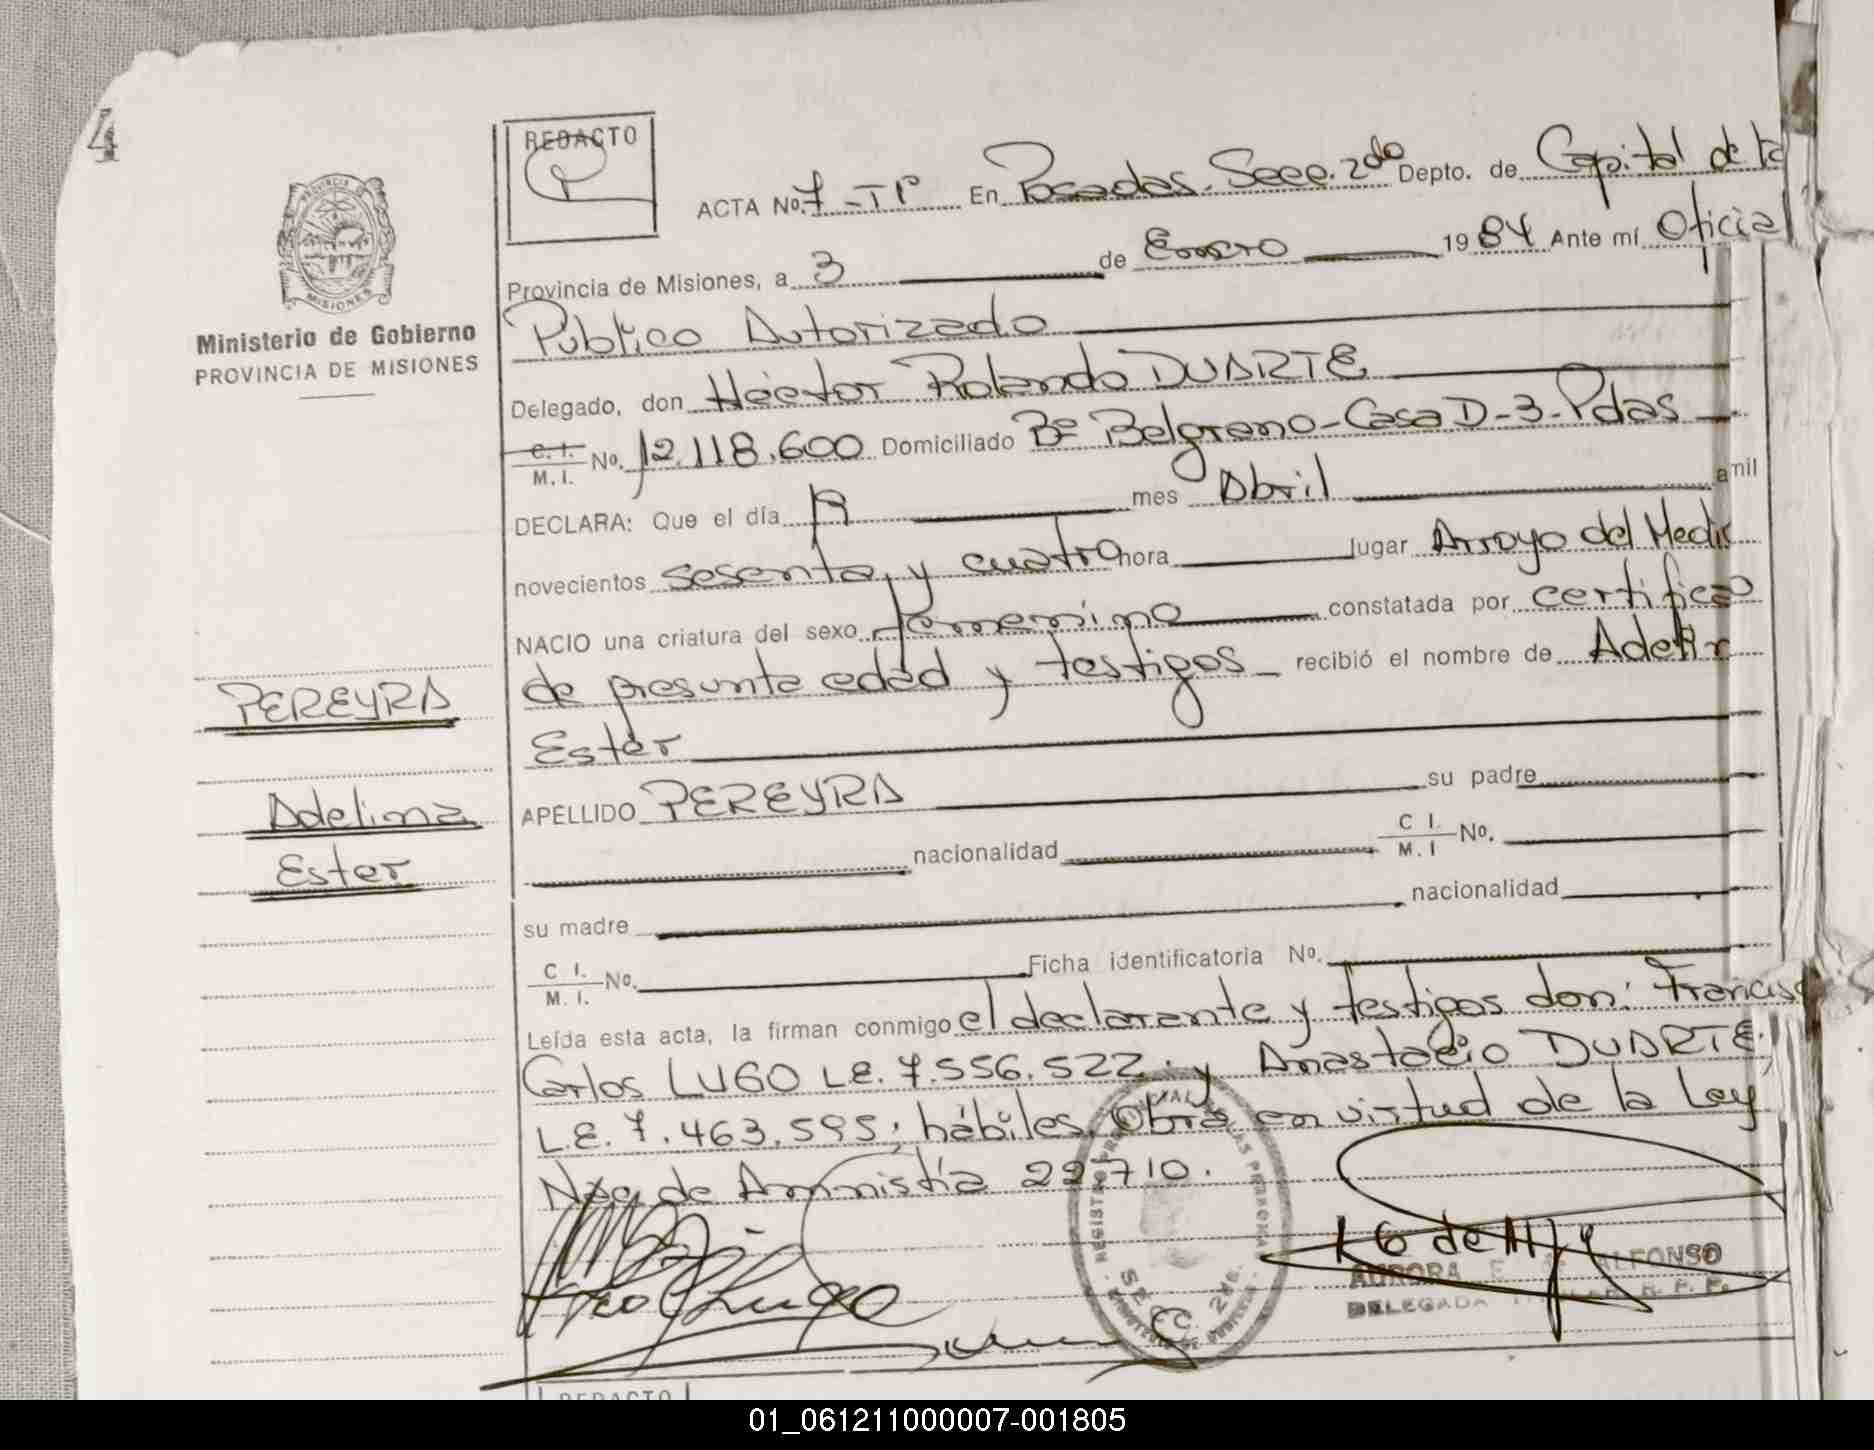 4
REDACTO
ACTA No. 7-TP En Posadas. Secc. 2do Depto. de Capital de la
Provincia de Misiones, a 3 de Enero 1984 Ante mí Oficial
Público Autorizado
Ministerio de Gobierno
PROVINCIA DE MISIONES
Delegado, don Héctor Rolando DUARTE
C. I. / M. I. No. 12.118.600 Domiciliado Bº Belgrano-Casa D-3-Pdas
DECLARA: Que el día 19 mes Abril a mil
novecientos sesenta y cuatro hora lugar Arroyo del Medio
NACIO una criatura del sexo femenino constatada por certifica
de presunta edad y testigos recibió el nombre de Adelin
Ester
PEREYRA
Adelina
Ester
APELLIDO PEREYRA su padre
nacionalidad C I. / M. I No.
su madre nacionalidad
C I. / M. I. No. Ficha identificatoria No.
Leída esta acta, la firman conmigo el declarante y testigos don: Francisco
Carlos LUGO L.E. 7.556.522. y Anastacio DUARTE,
L.E. 7.463.595; hábiles. Obra en virtud de la Ley
de Amnistía 22.710.
AURORA E. ALFONSO
DELEGADA TITULAR R. P. P.
SECC. 2da.
REDACTO
01_061211000007-001805